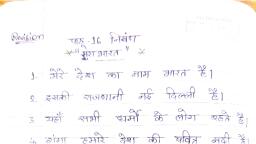 Revision
पाठ-16 निबंध
* "मेरा भारत" *
1. मेरे देश का नाम भारत है।
2. इसकी राजधानी नई दिल्ली है।
3. यहाँ सभी धर्मों के लोग रहते हैं।
4. गंगा हमारे देश की पवित्र नदी है।